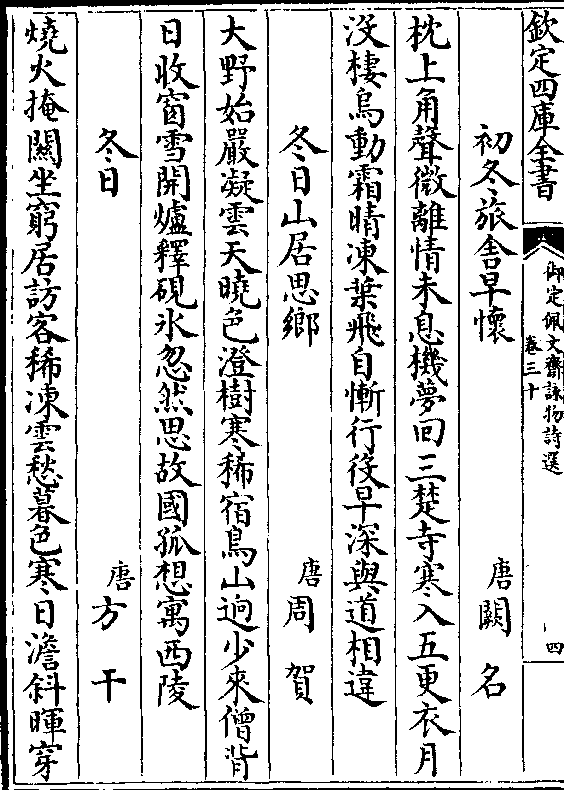 欽定四庫全書
御定佩文齋詠物詩選
卷三十
四
初冬旅舍早懷
唐闕名
枕上角聲微離情未息機夢回三楚寺寒入五更衣月
沒棲烏動霜晴凍葉飛自慚行役早深與道相違
冬日山居思鄉
唐周賀
大野始嚴凝雲天曉色澄樹寒稀宿鳥山逈少來僧背
日收窗雪開爐釋硯氷忽然思故國孤想寓西陵
冬日
唐方干
燒火掩關坐窮居訪客稀凍雲愁暮色寒日澹斜暉穿